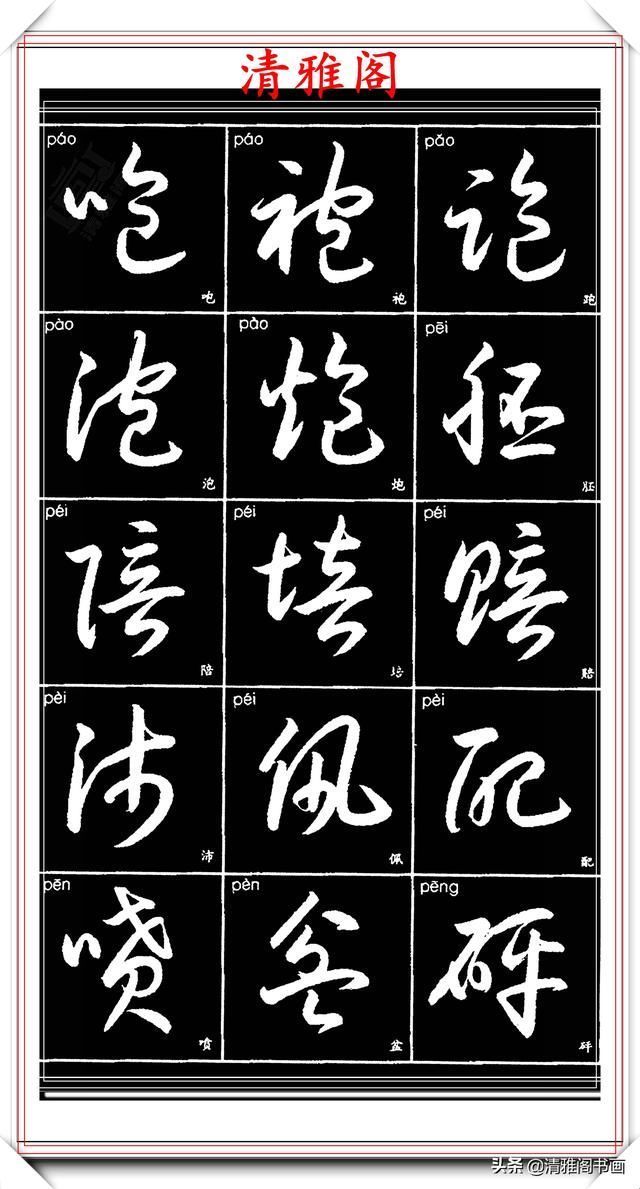 清雅阁
páo páo pǎo
咆 袍 跑
咆 袍 跑
pào pào pēi
泡 炮 胚
泡 炮 胚
péi péi péi
陪 培 賠
陪 培 賠
pèi péi pèi
沛 佩 配
沛 佩 配
pēn pèn pēng
噴 盆 砰
噴 盆 砰
头条 @清雅阁书画